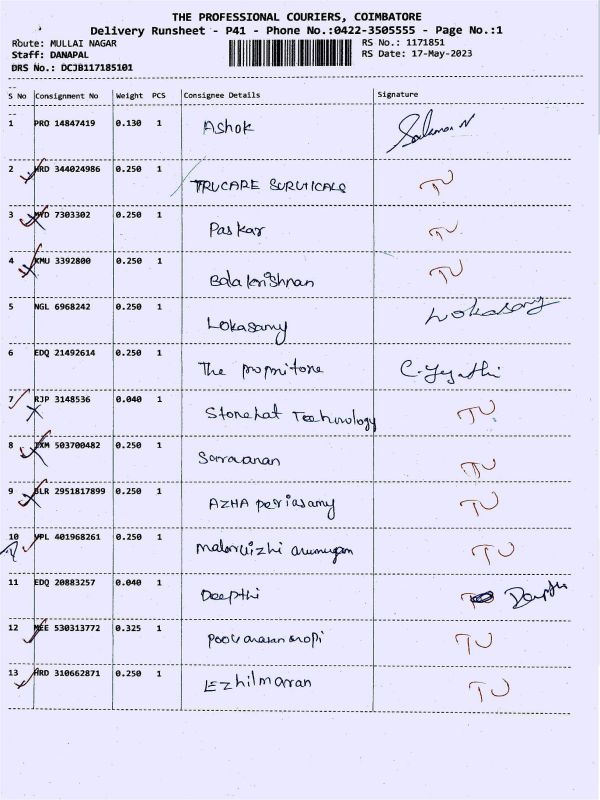 THE PROFESSIONAL COURIERS, COIMBATORE
Delivery Runsheet - P41 - Phone No.:0422-3505555 - Page No.:1
Route: MULLAI NAGAR RS No.: 1171851
Staff: DANAPAL RS Date: 17-May-2023
DRS No.: DCJB117185101
S No Consignment No Weight PCS Consignee Details Signature
1 PRO 14847419 0.130 1 Ashok
2 HRD 344024986 0.250 1 TRUCARE SURUICALS TU
3 7303302 0.250 1 Paskar TU
4 KMU 3392800 0.250 1 Balakrishnan TU
5 NGL 6968242 0.250 1 Lokasamy Lokasamy
6 EDQ 21492614 0.250 1 The propritore
7 RJP 3148536 0.040 1 Stonehat Technology TU
8 503700482 0.250 1 Sarravanan TU
9 BLR 2951817899 0.250 1 AZHA periasamy TU
10 VPL 401968261 0.250 1 malarvizhi arumugam TU
11 EDQ 20883257 0.040 1 Deepthi
12 MEE 530313772 0.325 1 TU
13 HRD 310662871 0.250 1 Ezhilmaran TU